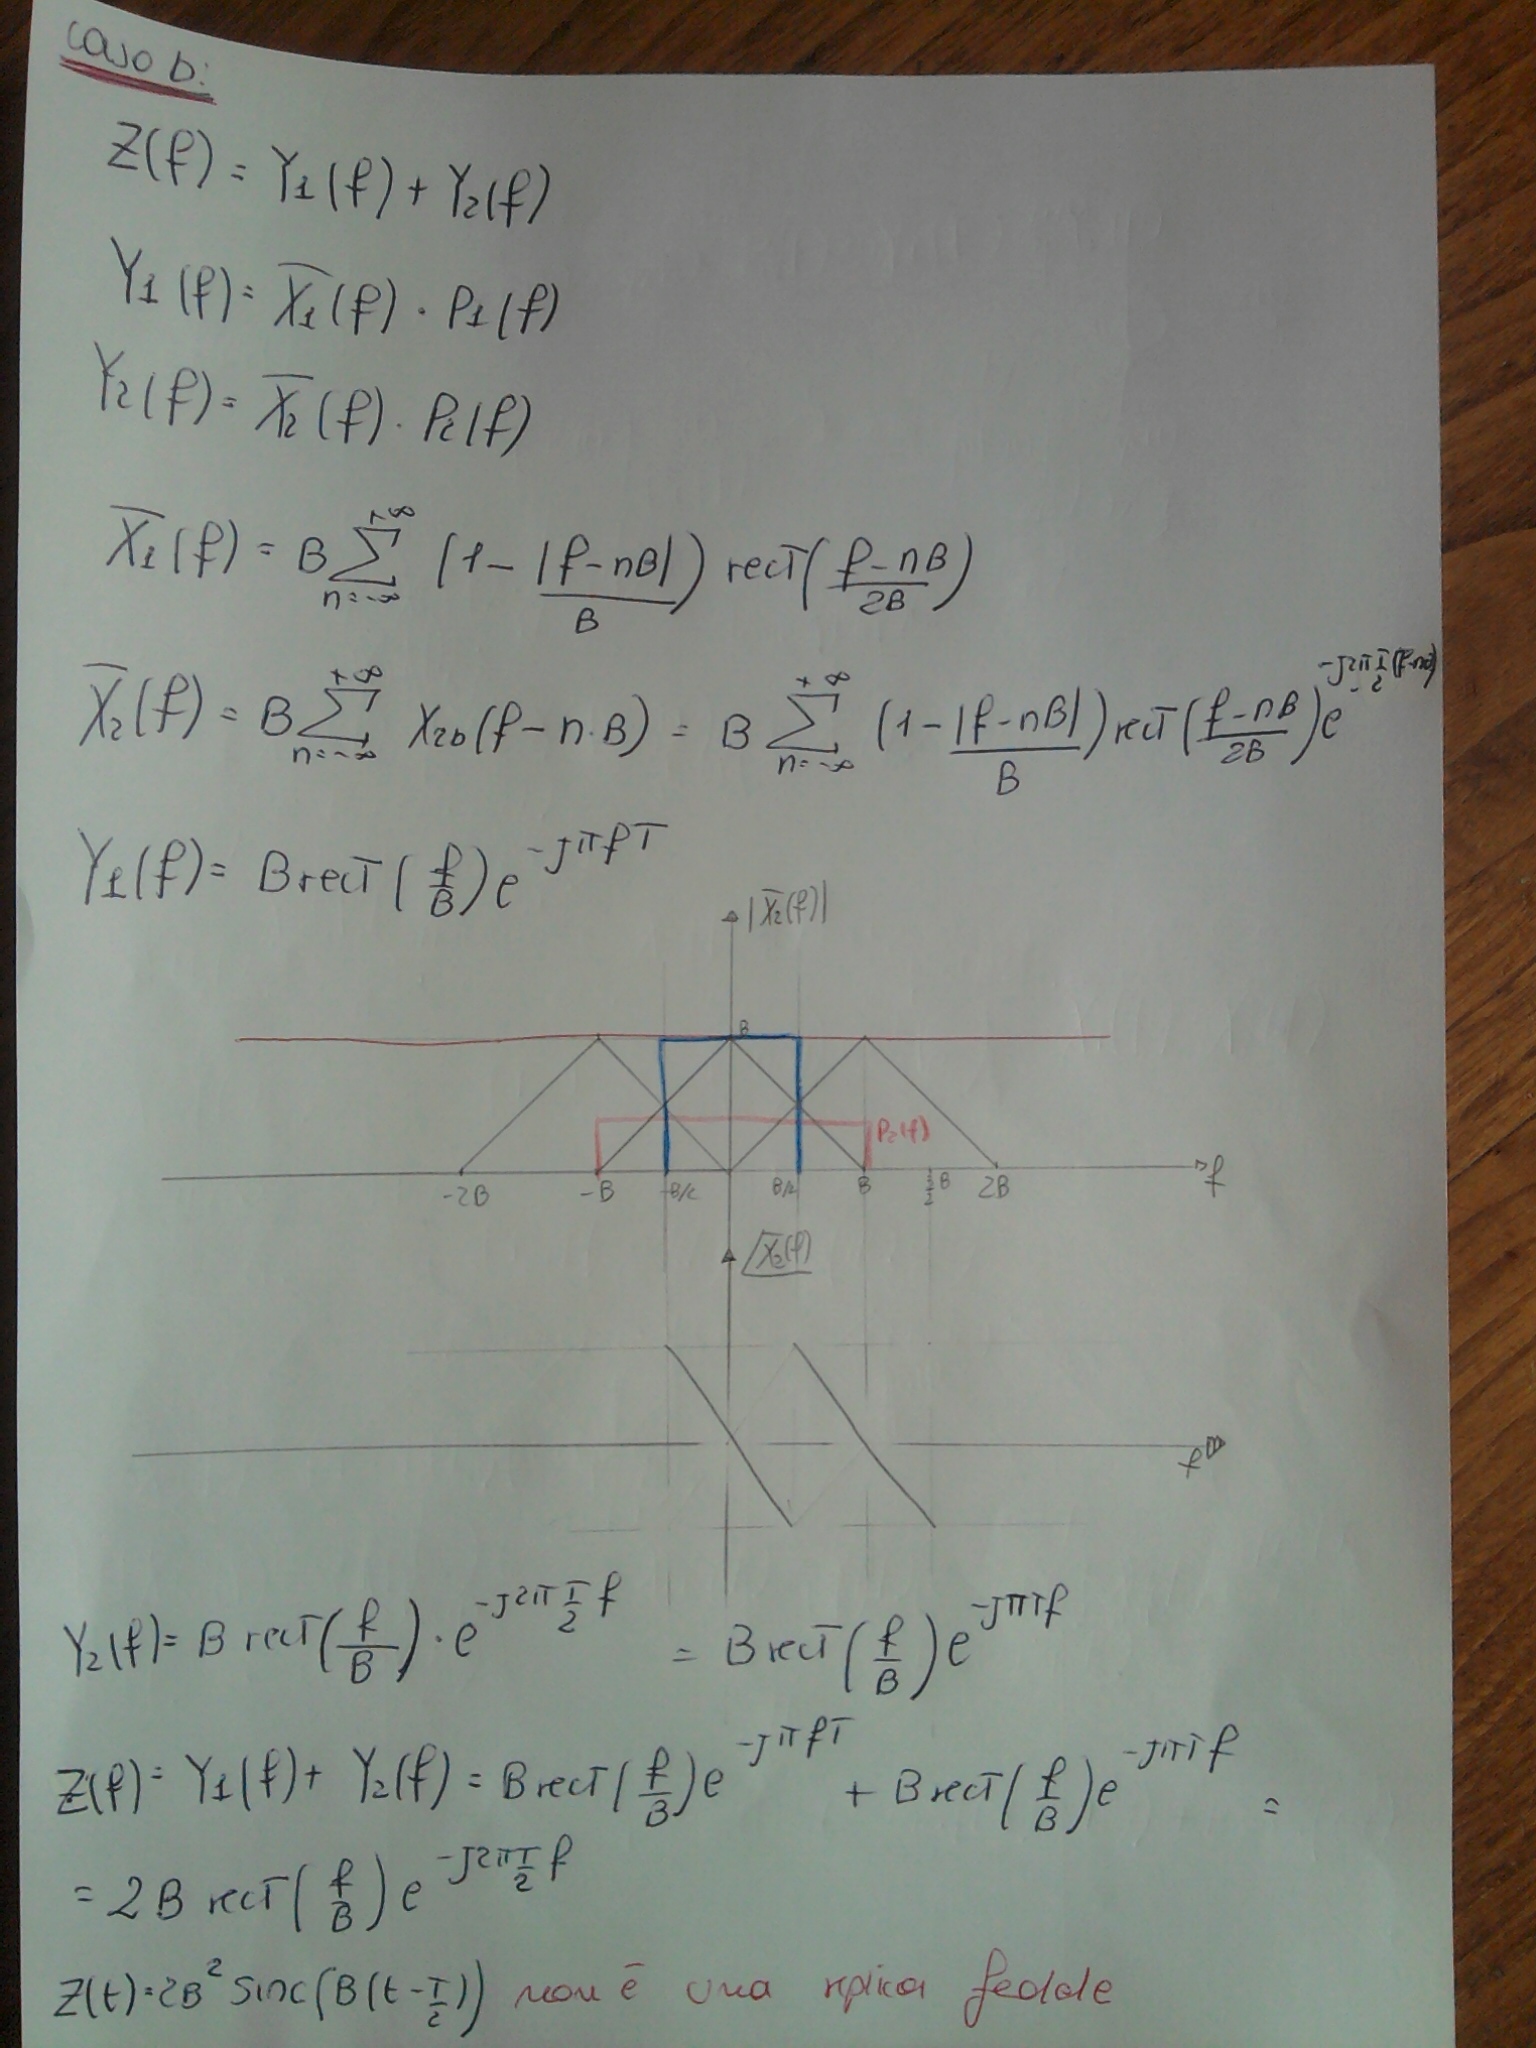 caso b:
Z(f) = Y1(f) + Y2(f)
Y1(f) = X̅1(f) · P1(f)
Y2(f) = X̅2(f) · P2(f)
X̅1(f) = B ∑_{n=-∞}^{+∞} (1 - |f-nB|/B) rect((f-nB)/2B)
X̅2(f) = B ∑_{n=-∞}^{+∞} X2b(f-n·B) = B ∑_{n=-∞}^{+∞} (1 - |f-nB|/B) rect((f-nB)/2B) e^{-j2π T/2 (f-nB)}
Y1(f) = B rect(f/B) e^{-jπfT}
|X̅2(f)|
B
P2(f)
-2B -B -B/2 B/2 B 3/2 B 2B f
∠X̅2(f)
f
Y2(f) = B rect(f/B) · e^{-j2π T/2 f} = B rect(f/B) e^{-jπTf}
Z(f) = Y1(f) + Y2(f) = B rect(f/B) e^{-jπfT} + B rect(f/B) e^{-jπTf} =
= 2B rect(f/B) e^{-j2π T/2 f}
Z(t) = 2B² sinc(B(t-T/2)) non è una replica fedele